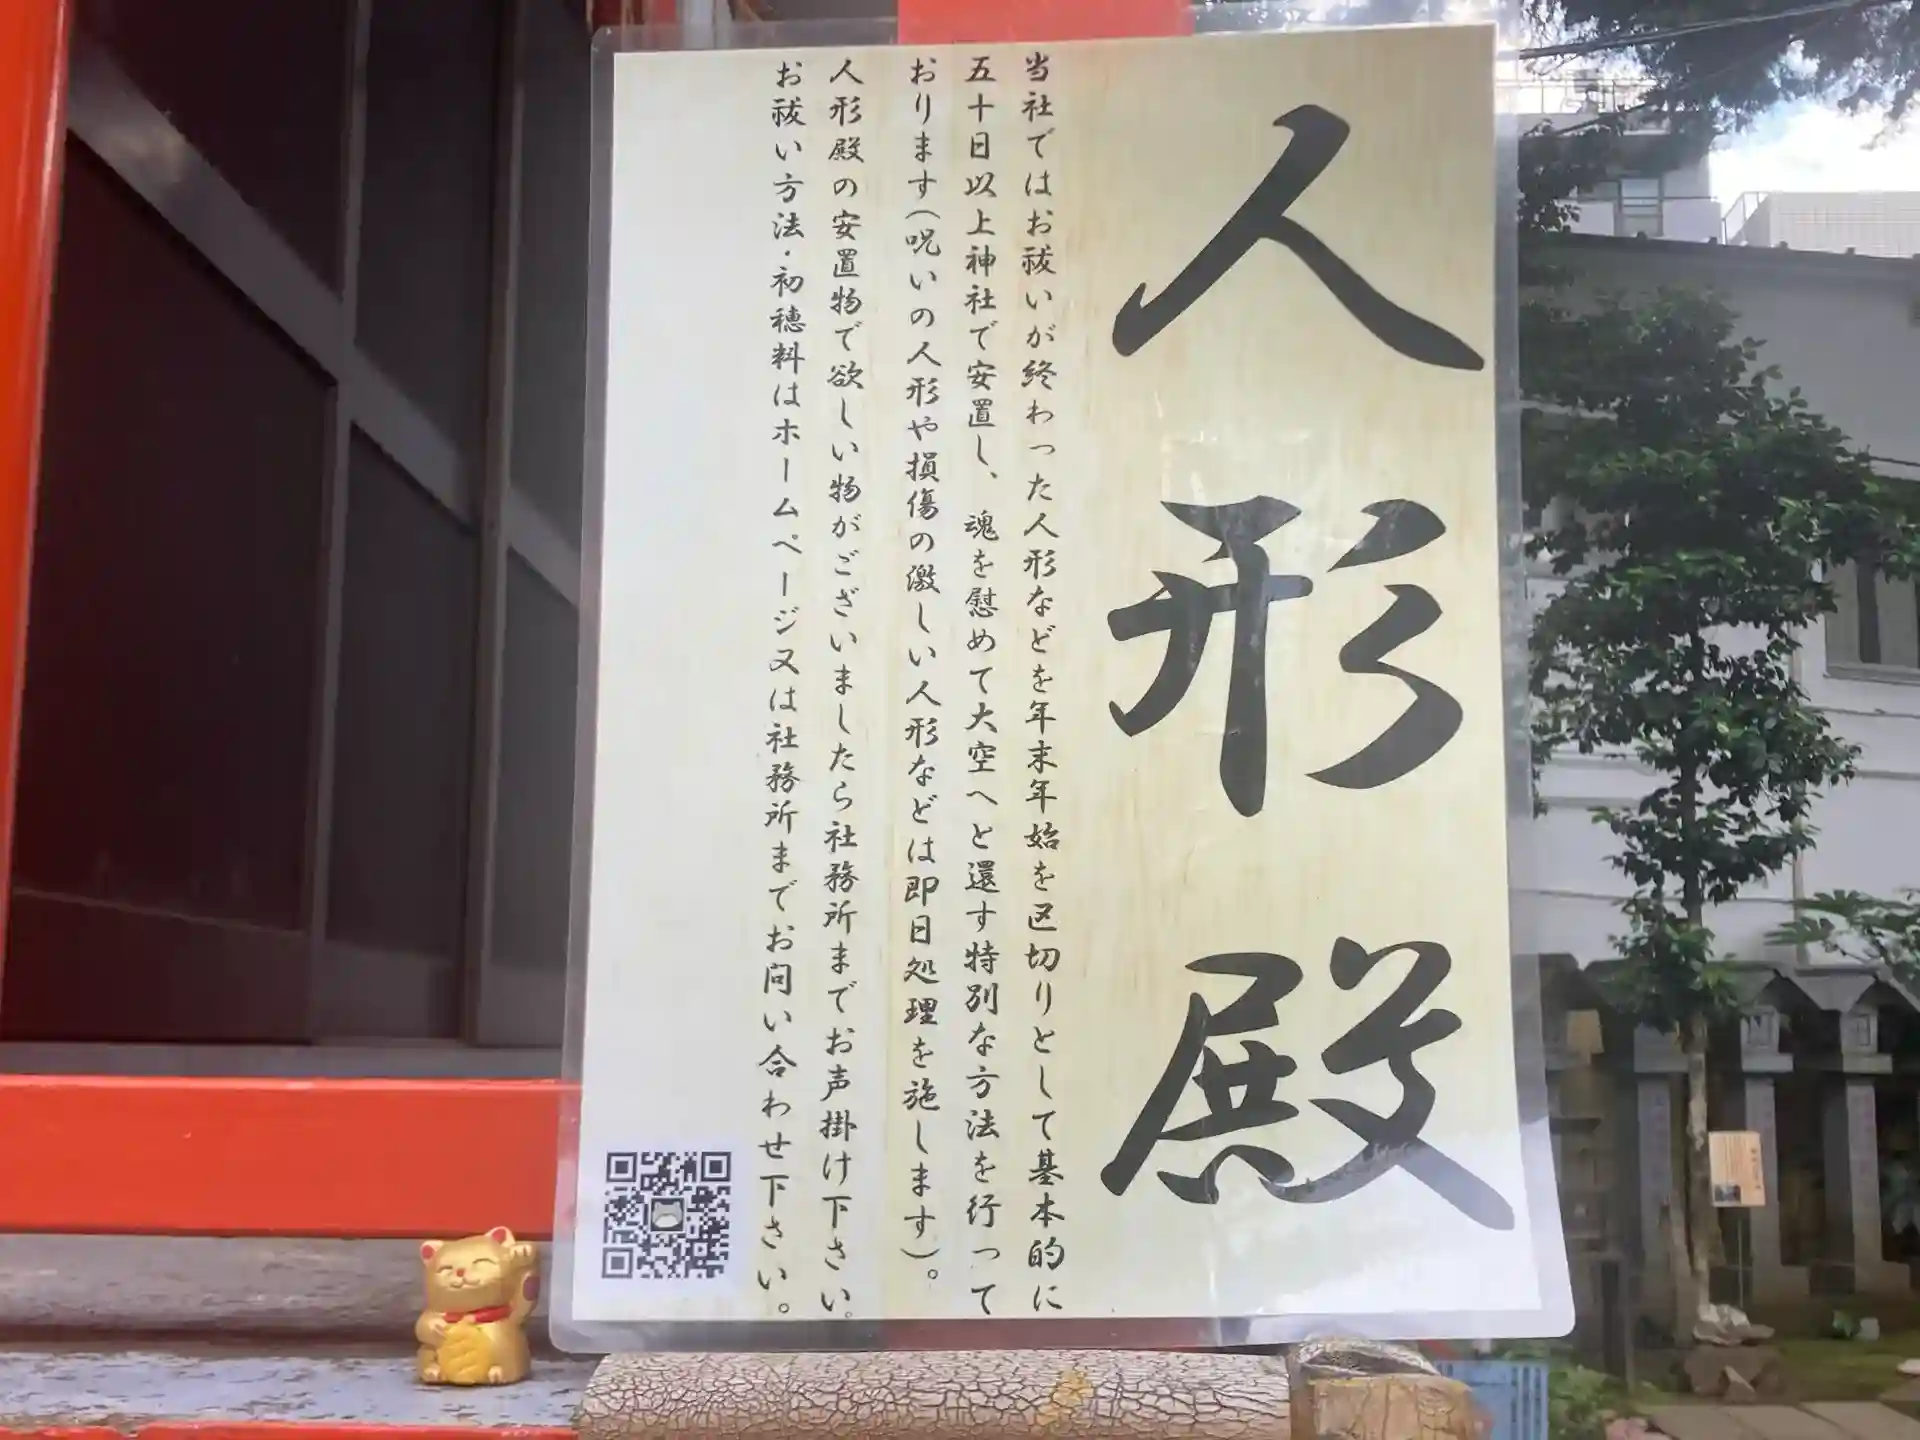 人形殿
当社ではお祓いが終わった人形などを年末年始を区切りとして基本的に
五十日以上神社で安置し、魂を慰めて大空へと還す特別な方法を行って
おります(呪いの人形や損傷の激しい人形などは即日処理を施します)。
人形殿の安置物で欲しい物がございましたら社務所までお声掛け下さい。
お祓い方法・初穂料はホームページ又は社務所までお問い合わせ下さい。